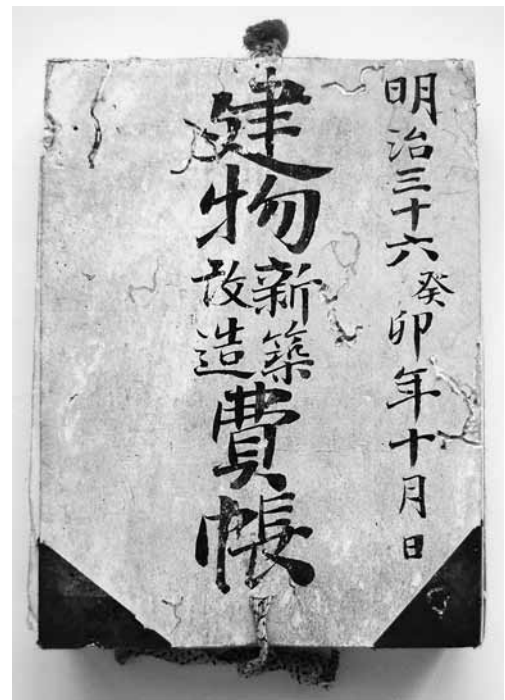 明治三十六癸卯年十月日
建物新築改造費帳